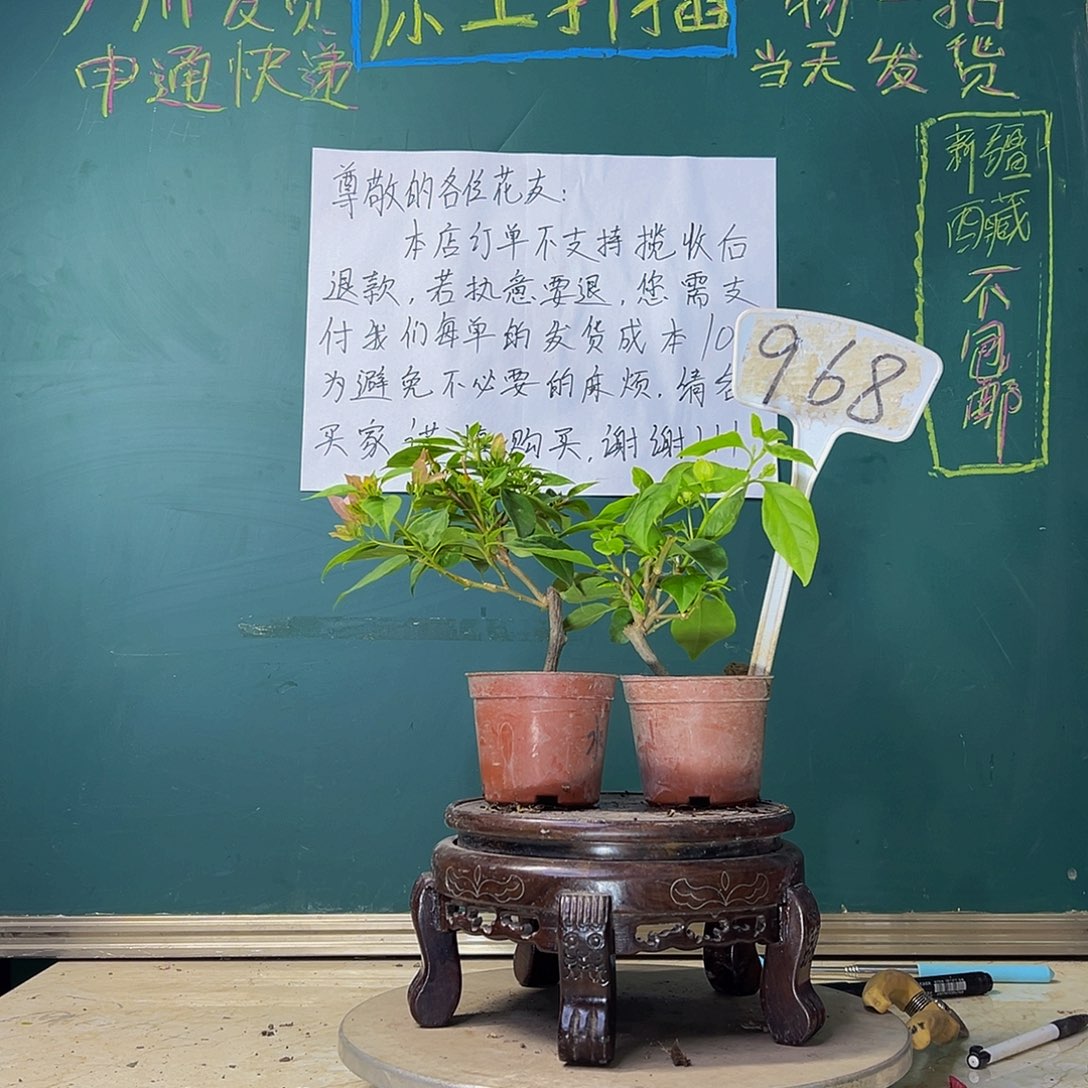 广州发货
原土扦插
一物一拍
申通快递
当天发货
新疆
西藏
不包邮
尊敬的各位花友:
本店订单不支持揽收后
退款,若执意要退,您需支
付我们每单的发货成本10
为避免不必要的麻烦.请各
买家 购买,谢谢!!!
968
水